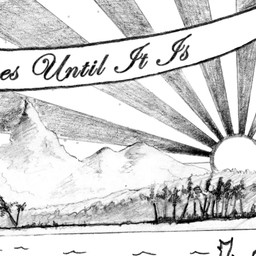 es Until It Is